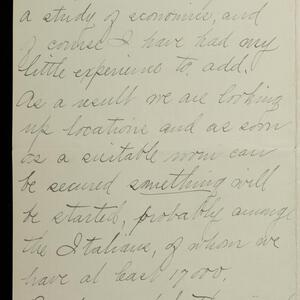 a study of economics, and
of course I have had my
little experience to add.
As a result we are looking
up locations and as soon
as a suitable room can
be secured something will
be started, probably among
the Italians, of whom we
have at least 17000.